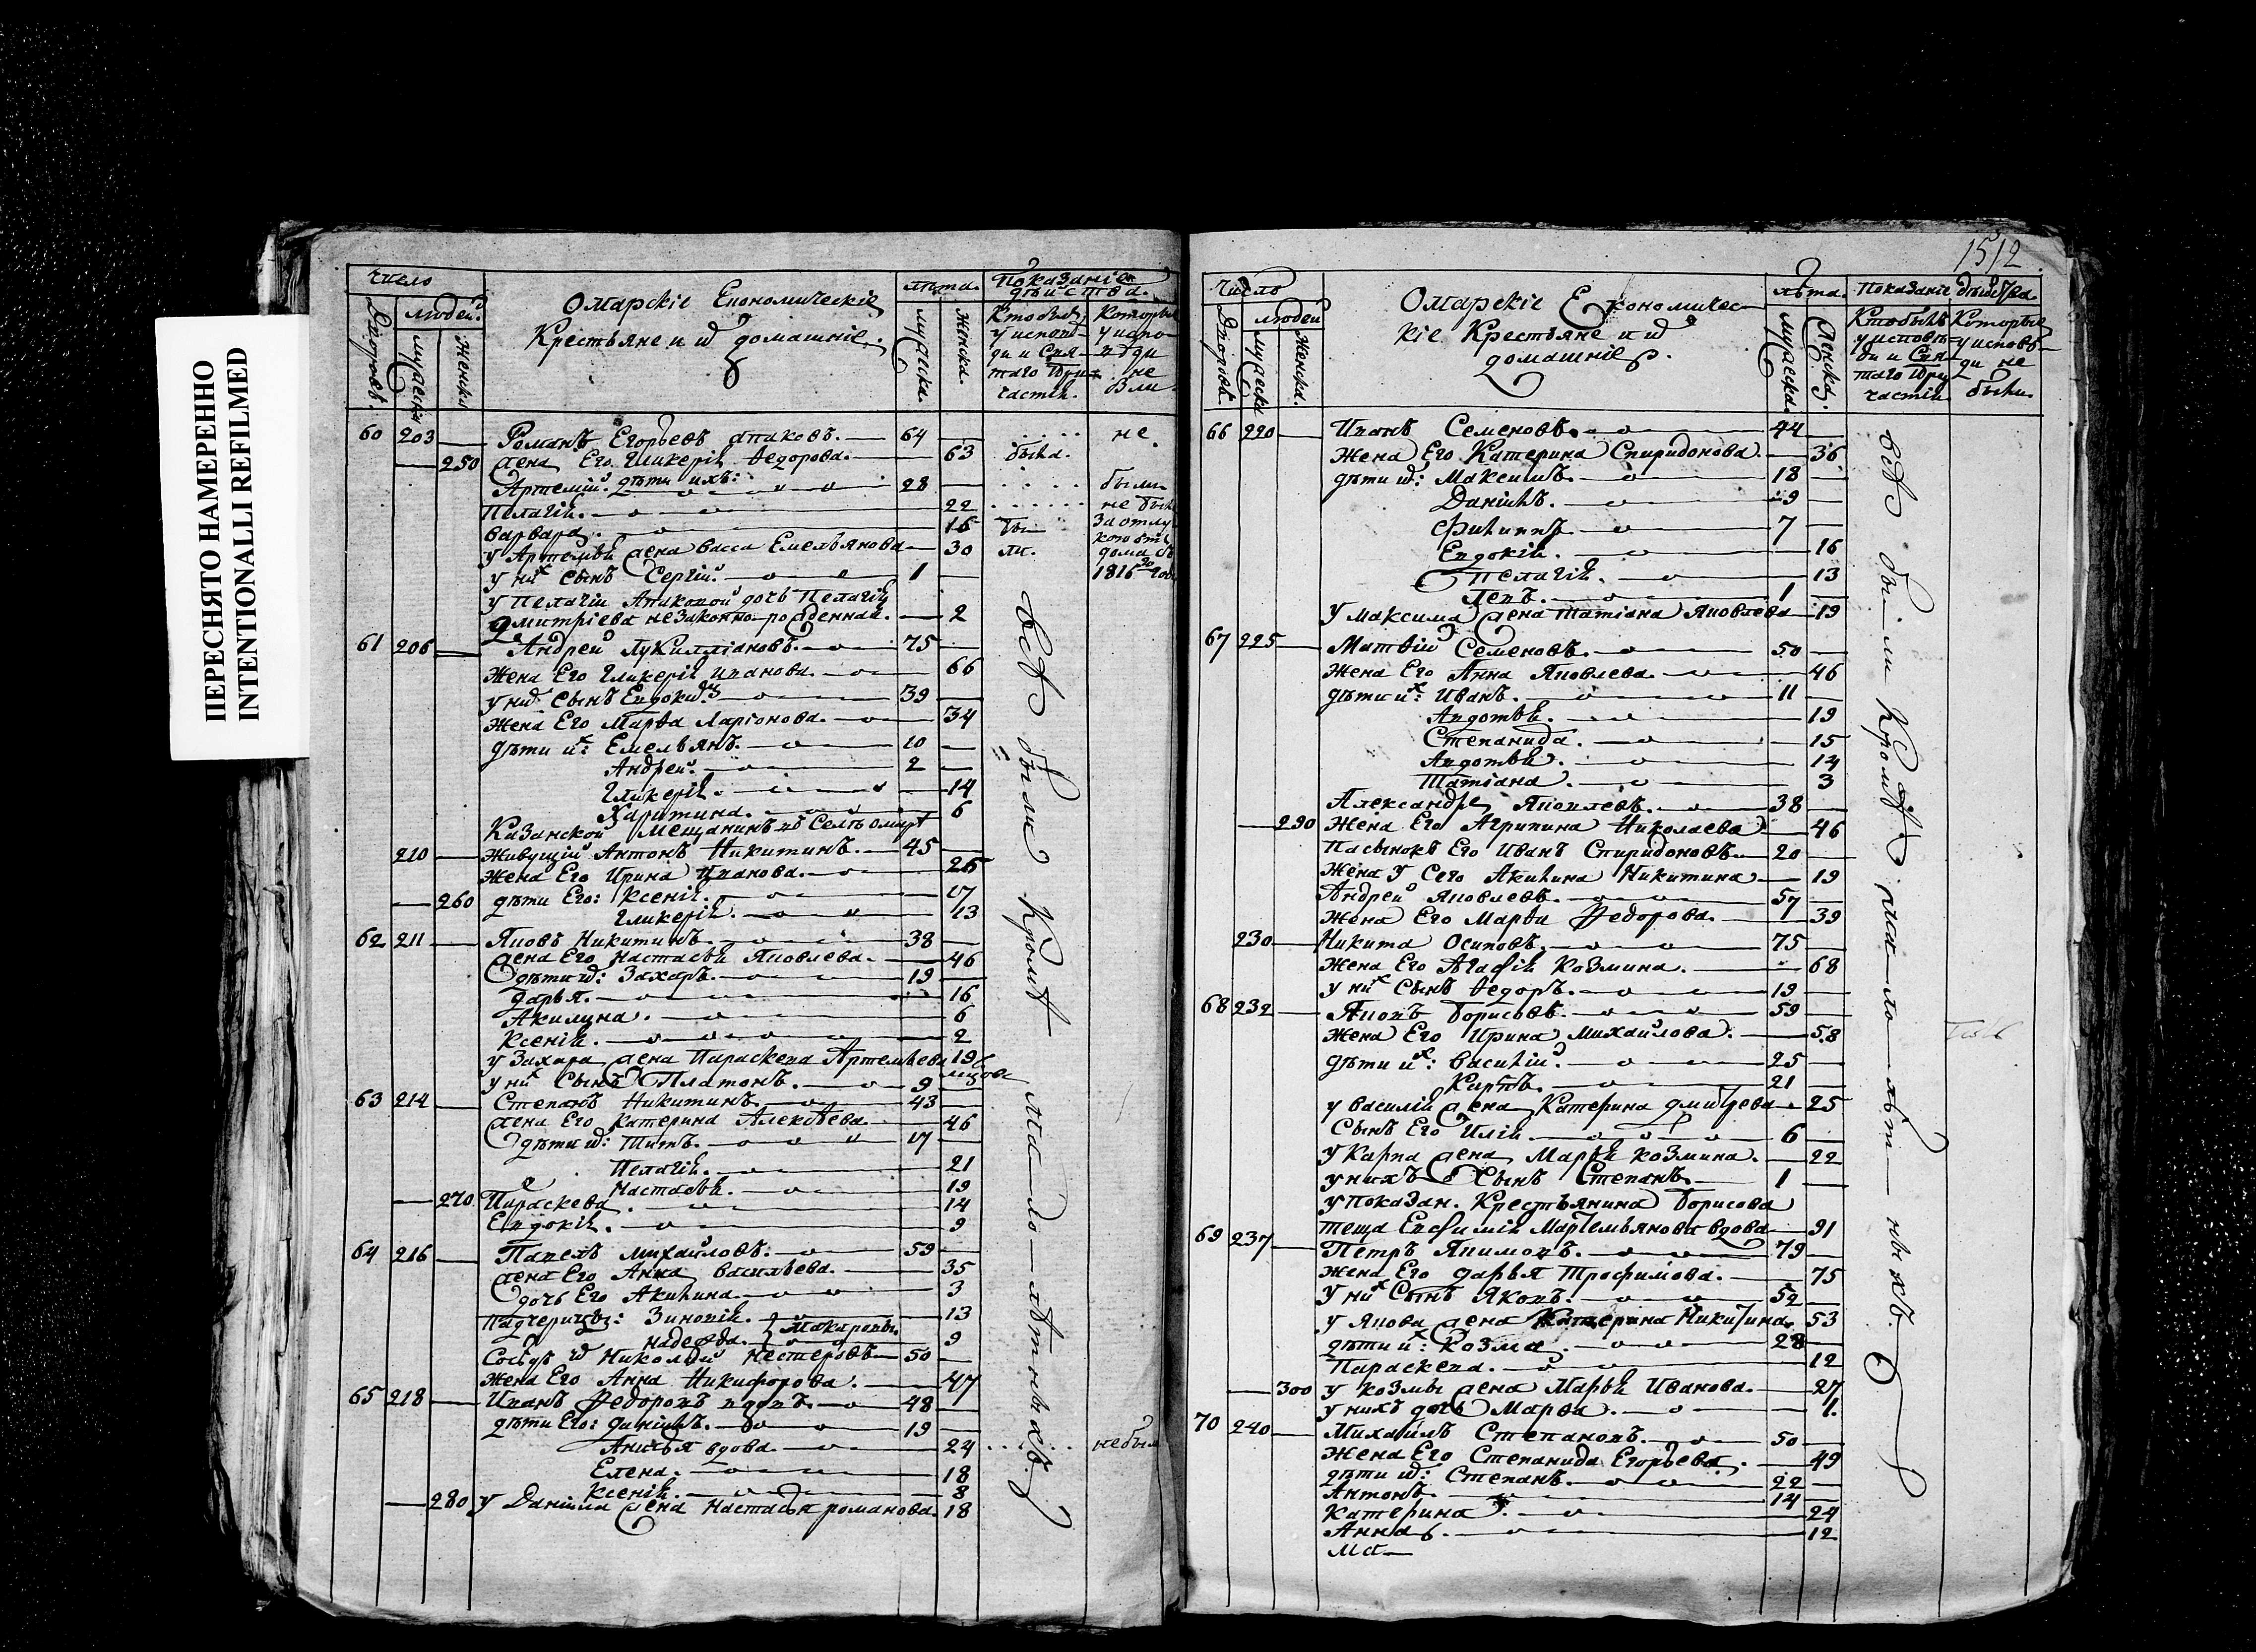 ПЕРЕСНЯТО НАМЕРЕННО
INTENTIONALLI REFILMED
число
людей.
дворовъ.
мужеска
женска
Омарскіе Економическіе
Крестьяне и их домашніе.
лѣта.
мужеска.
женска.
Показаніе
дѣйства.
Кто былъ
у испов-
ди и Свя-
таго При-
частія.
Которые
у испо-
вѣди
не
были
60 203 Романъ Егорьевъ — 64 не
250 жена Его Гликерія Федорова. — 63 была.
Артемій. дѣти ихъ: 28 были
Пелагія. 22 не был
Варвара. 16 бы за отлу
у Артемья жена Васса Емельянова 30 ли. дома
у них сынъ Сергій. 1 1816 го год
у Пелагіи дочь Пелагія
Дмитріева незаконно рожденная. 2
61 206 Андрей Лукилліановъ. 75
жена Его Гликерія Иванова. 66
у них сынъ Евдокимъ 39
Жена Его Марѳа Ларіонова. 34
дѣти их: Емельянъ. 10
Андрей. 2
Гликерія. 14
Харитина. 6
Казанской Мещанинъ въ Селѣ Омарѣ
210 живущій Антонъ Никитинъ. 45
жена Его Ирина Иванова. 26
260 дѣти Его: Ксенія. 17
Гликерія. 13
62 211 Яковъ Никитинъ. 38
жена Его Настасья Яковлева. 46
дѣти их: Захаръ. 19
Дарья. 16
Акилина. 6
Ксенія. 2
у Захара жена Параскева Артемьева 19
у них Сынъ Платонъ. 9 мцовъ
63 214 Степанъ Никитинъ. 43
жена Его Катерина Алексѣева. 46
дѣти их: Титъ. 17
Пелагія. 21
Настасья. 19
270 Параскева. 14
Евдокія. 9
64 216 Павелъ Михайловъ. 59
жена Его Анна Васильева. 35
дочь Его Акилина. 3
Падчерицы: Зиновія. 13
Надежда. } Макаровы. 9
Сосѣдъ их Николай Нестеровъ 50
жена Его Анна Никифорова. 47
65 218 Иванъ Федоровъ вдовъ. 48
дѣти Его: Даніилъ. 19
Анисья вдова. 24 не был
Елена. 18
Ксенія. 8
280 у Даніила жена Настасья Романова. 18
всѣ были кромѣ малолѣтныхъ
1512
Число
людей
Дворовъ
мужеска
женска.
Омарскіе Економичес
кіе Крестьяне и их
домашніе.
лѣта.
мужеска.
женска.
Показаніе дѣйства
Кто былъ
у исповѣ-
ди и Свя-
таго При-
частія
Которые
у исповѣ-
ди не
были
66 220 Иванъ Семеновъ. 44
жена Его Катерина Спиридонова. 36
дѣти их: Максимъ. 18
Даніилъ. 9
Филиппъ 7
Евдокія. 16
Пелагія. 13
Левъ. 1
У Максима жена Татіана Яковлева 19
67 225 Матвій Семеновъ. 50
Жена Его Анна Яковлева. 46
дѣти их: Иванъ. 11
Авдотья. 19
Степанида. 15
Авдотья. 14
Татіана. 3
Александръ Яковлевъ. 38
290 Жена Его Агрипина Николаева 46
Пасынокъ Его Иванъ Спиридоновъ. 20
Жена У Сего Акилина Никитина 19
Андрей Яковлевъ. 57
Жена Его Марѳа Федорова. 39
230 Никита Осиповъ. 75
Жена Его Агафія Козмина. 68
у них Сынъ Ѳедоръ. 19
68 232 Яковъ Борисовъ. 59
Жена Его Ирина Михайлова. 58
дѣти их: Василій. 25
Карпъ. 21
у Василія жена Катерина Дмитрева. 25
Сынъ Его Илія. 6
У Карпа жена Марья Козмина. 22
у нихъ Сынъ Степанъ. 1
у показан. Крестьянина Борисова
теща Евфимія Мартемьянова вдова 91
69 237 Петръ Якимовъ. 79
Жена Его Дарья Трофимова. 75
У них Сынъ Яковъ. 52
у Якова жена Катерина Никитина. 53
дѣти их: Козма. 28
Параскева. 12
300 у Козмы жена Марья Иванова. 27
у нихъ дочь Марѳа. 1.
70 240 Михайлъ Степановъ. 50
Жена Его Степанида Егорьева. 49
дѣти их: Степанъ. 22
Антонъ. 14
Катерина. 24
Анна. 12
ма—
всѣ были кромѣ малолѣтныхъ.